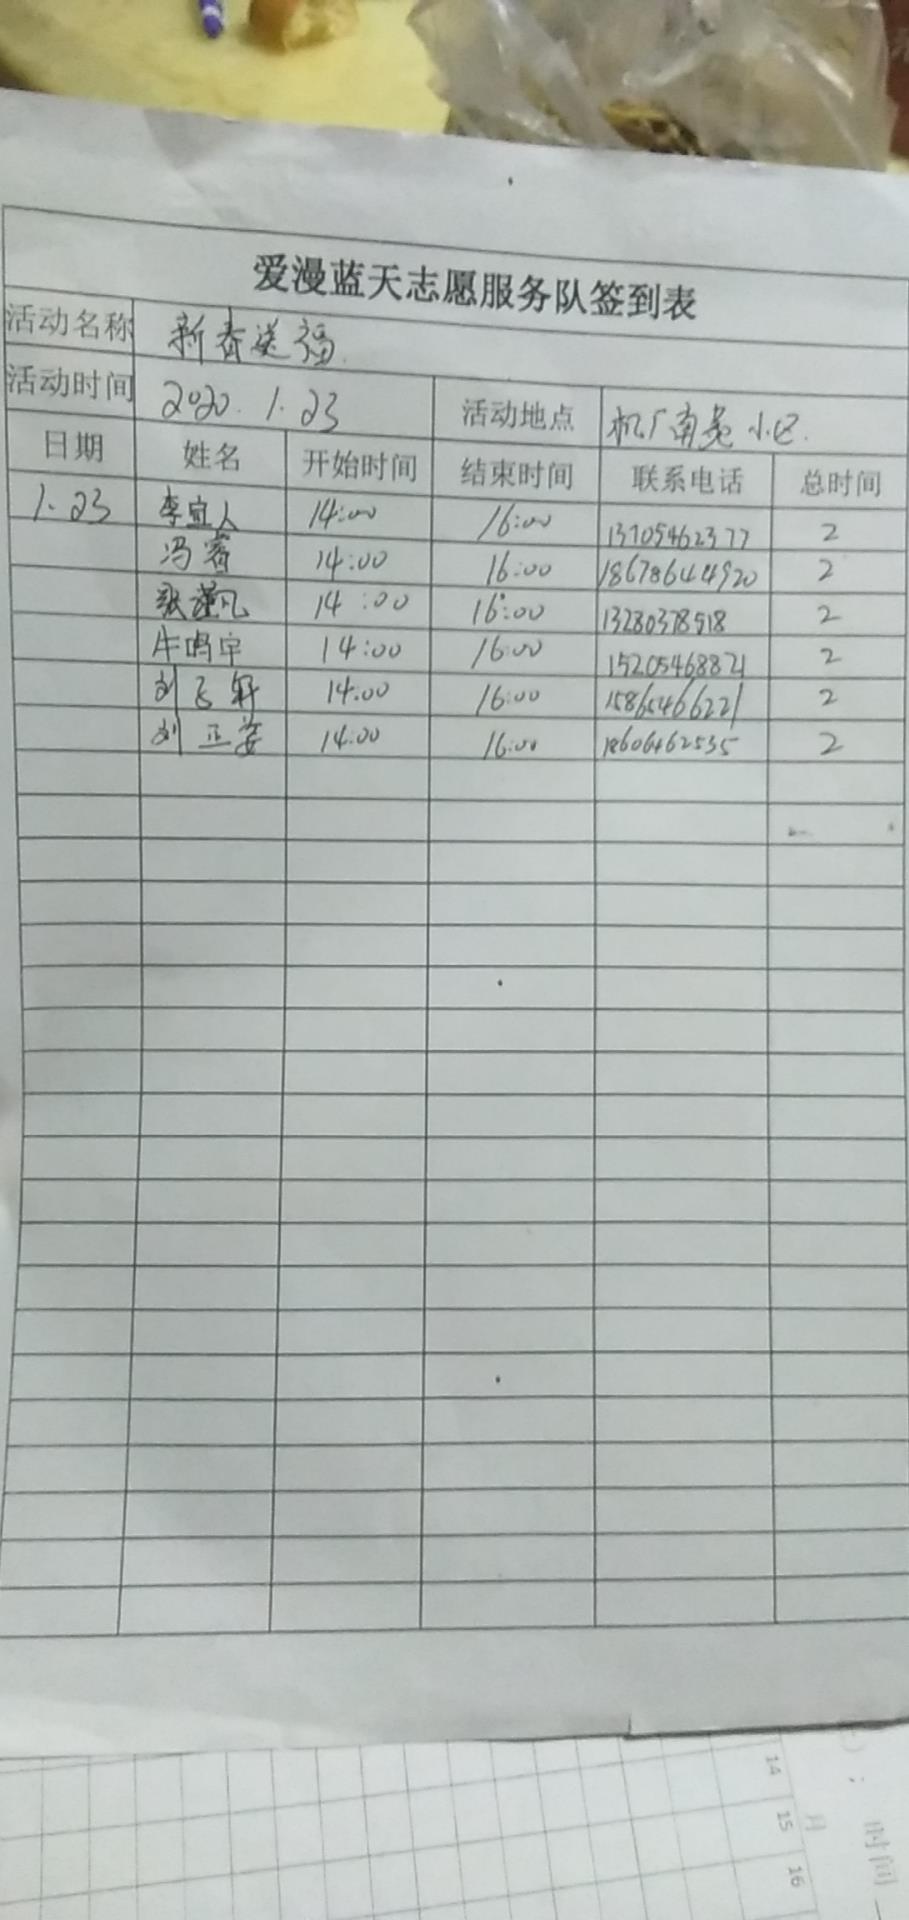 爱漫蓝天志愿服务队签到表
活动名称 新春送福
活动时间 2020.1.23 活动地点 机厂南苑小区.
日期 姓名 开始时间 结束时间 联系电话 总时间
1.23 李宜人 14:00 16:00 13705462377 2
冯睿 14:00 16:00 18678644920 2
张谨凡 14:00 16:00 13280378518 2
牛鸣宇 14:00 16:00 15205468821 2
刘飞轩 14:00 16:00 15865466221 2
刘正姿 14:00 16:00 18606462535 2
14
15
16
月
时间